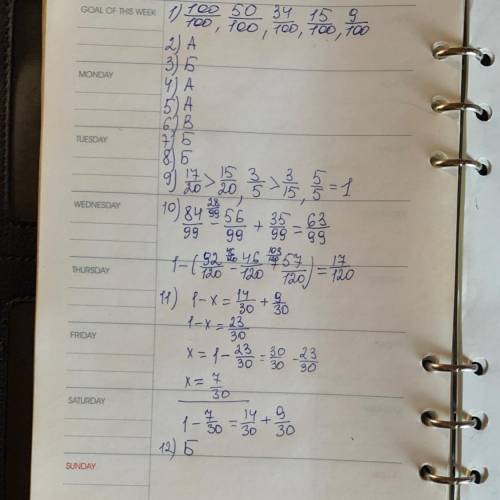 GOAL OF THIS WEEK
1) 100/100, 50/100, 34/100, 15/100, 9/100
2) А
3) Б
MONDAY
4) А
5) А
6) В
TUESDAY
7) Б
8) Б
9) 17/20 > 15/20, 3/5 > 3/15, 5/5 = 1
WEDNESDAY
10) 84/99 - 56/99 + 35/99 = 63/99
THURSDAY
1-(92/120 - 46/120 + 57/120) = 17/120
11) 1-x = 14/30 + 9/30
1-x = 23/30
FRIDAY
x = 1 - 23/30 = 30/30 - 23/30
x = 7/30
SATURDAY
1 - 7/30 = 14/30 + 9/30
12) Б
SUNDAY